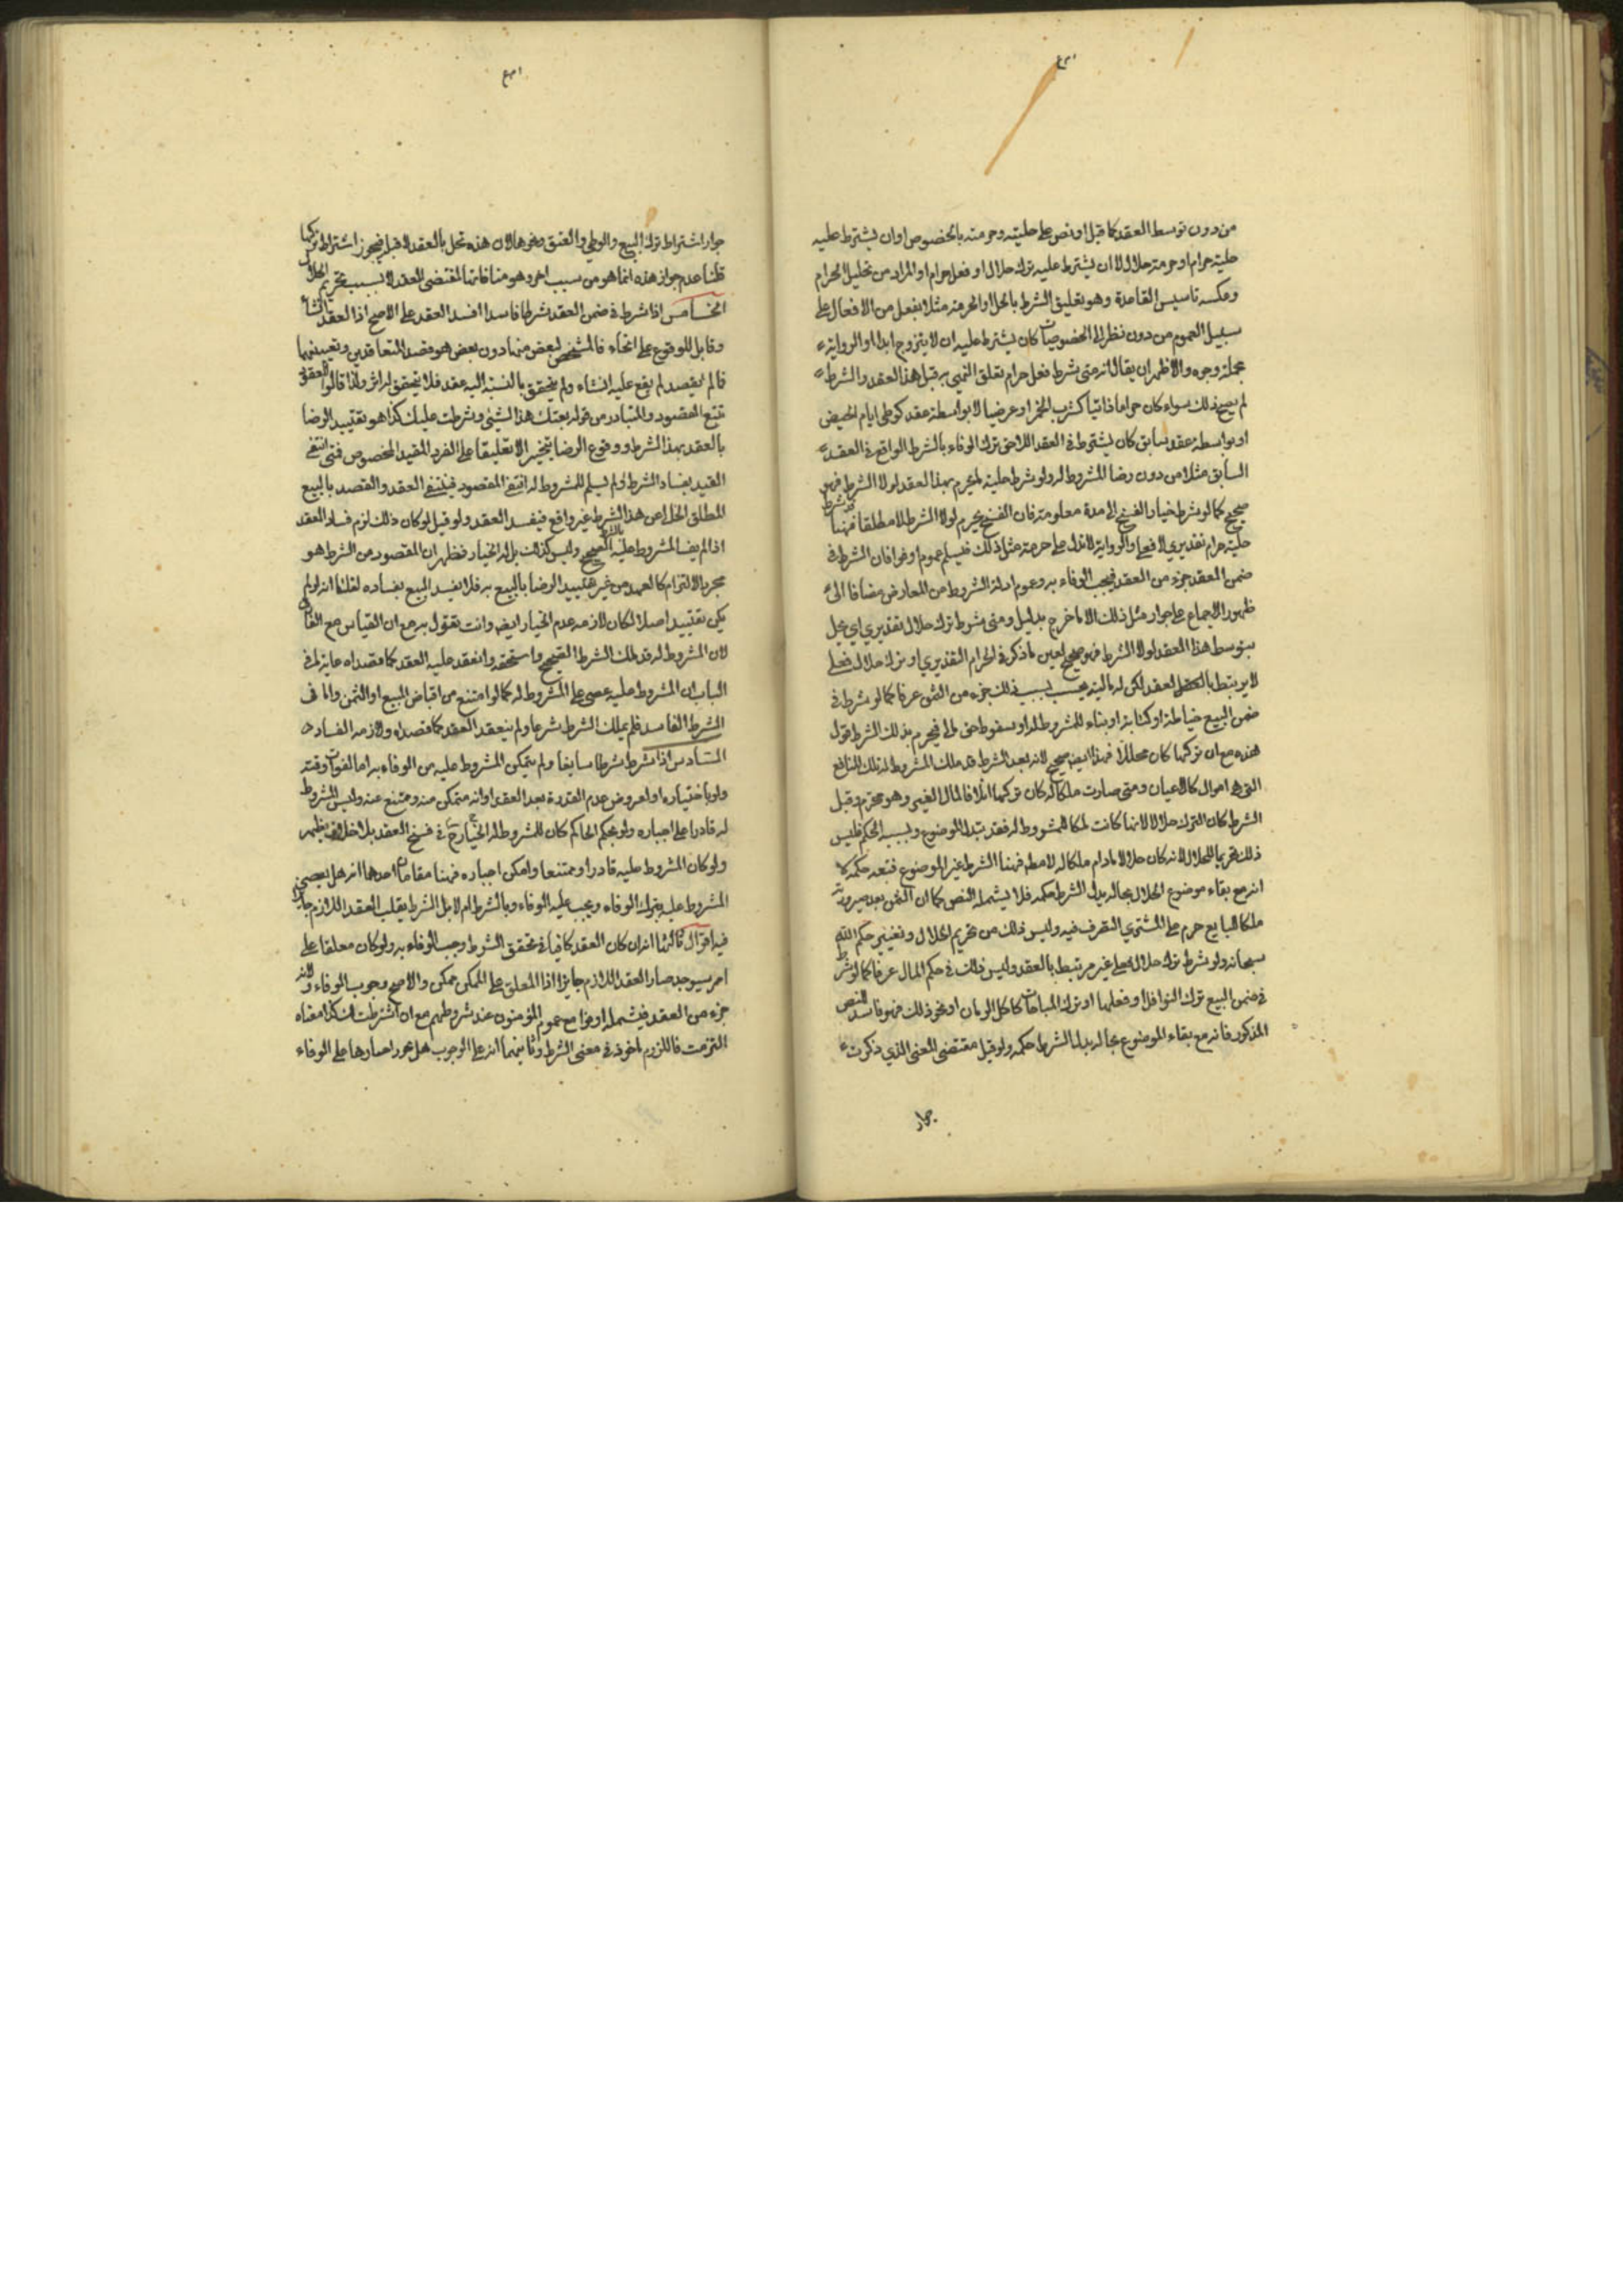 من دون توسط العقد كما قيل او نص على حليته وحرمته بالخصوص او ان يشترط عليه
حلية حرام او حرمة حلال لا ان يشترط عليه ترك حلال او فعل حرام او المراد من تحليل الحرام
وعكسه تاسيس القاعدة وهو تعليق الشرط بالحل او الحرمة مثلا بفعل من الافعال على
سبيل العموم من دون نظر الى الخصوصيات كان يشترط عليه ان لا يتزوج ابدا او الرواية
مجملة وجوه والاظهر ان يقال انه متى شرط فعل حرام تعلق النهي به قبل هذا العقد والشرط
لم يصح ذلك سواء كان حراما ذاتيا كشرب الخمر او عرضيا لا بواسطة عقد كوطي ايام الحيض
او بواسطة عقد سابق كان يشترط في العقد اللاحق ترك الوفاء بالشرط الواقع في العقد
السابق مثلا من دون رضا المشروط له ولو شرط حلية ما يحرم بهذا العقد لولا الشرط فهو
صحيح كما لو شرط خيار الفسخ الى مدة معلومة فان الفسخ يحرم لولا الشرط لا مطلقا فهنا قد شرط
حلية حرام تقديري لا فعلي والرواية لا تدل على حرمة مثل ذلك فيسلم عموم اوفوا فان الشرط في
ضمن العقد جزء من العقد فيجب الوفاء به وعموم ادلة الشروط من المعارض مضافا الى
ظهور الاجماع على جواز مثل ذلك الا ما خرج بدليل ومتى شرط ترك حلال تقديري اي يحل
بتوسط هذا العقد لولا الشرط فهو صحيح لعين ما ذكر في الحرام التقديري او ترك حلال فعلي
لا يرتبط بالعقد لكن له مالية يحسب بسبب ذلك جزء من الثمن عرفا كما لو شرط في
ضمن البيع خياطة او كتابة او بناء للمشروط له او سقوط حق له فيحرم بذلك الشرط ترك
هذه مع ان تركها كان محللا فهذا ايضا صحيح لانه بعد الشرط قد ملك المشروط له تلك المنافع
التي هي اموال كالاعيان ومتى صارت ملكا له كان تركها اتلافا لمال الغير وهو محرم وقبل
الشرط كان الترك حلالا لانها كانت ملكا للمشروط له فقد تبدل الموضوع وبسببه الحكم فليس
ذلك تحريما للحلال لانه كان حلالا مادام ملكا له لا مطلقا فهنا الشرط غير الموضوع فتبعه حكمه لا
انه مع بقاء موضوع الحلال بحاله بدل الشرط حكمه فلا يشمله النص كما ان الثمن بعد صيرورته
ملكا للبايع حرم على المشتري التصرف فيه وليس ذلك من تحريم الحلال وتغيير حكم الله
سبحانه ولو شرط ترك حلال فعلي غير مرتبط بالعقد وليس ذلك في حكم المال عرفا كما لو شرط
في ضمن البيع ترك النوافل او فعلها او ترك المباحات كاكل الرمان او نحو ذلك فهو فاسد للنص
المذكور فانه مع بقاء الموضوع بحاله بدل الشرط حكمه ولو قيل مقتضى المعنى الذي ذكرت
جواز
جواز اشتراط ترك البيع والوطي والعتق ونحوها لان هذه تحل بالعقد لا قبله فيجوز اشتراط تركها
قلنا عدم جواز هذه انما هو من سبب اخر وهو منافاتها لمقتضى العقد لا بسبب تحريم الحلال
الخامس اذا شرط في ضمن العقد شرطا فاسدا افسد العقد على الاصح اذ العقد انشاء
وقابل للوقوع على انحاء فالمشخص لبعض منها دون بعض هو قصد المتعاقدين وتعيينهما
فما لم يقصد لم يقع عليه انشاء ولم يتحقق بالنسبة اليه عقد فلا يتحقق له اثر ولذا قالوا العقود
تتبع القصود والمتبادر من قوله بعتك هذا الشيئ وشرطت عليك كذا هو تقييد الرضا
بالعقد بهذا الشرط ووقوع الرضا بتخيير لا تعليقا على الفرد المقيد المخصوص فمتى انتفى
القيد بفساد الشرط ولم يسلم للمشروط له انتفى المقصود فينتفي العقد والقصد بالبيع
المطلق الخالي عن هذا الشرط غير واقع فيفسد العقد ولو قيل لو كان ذلك لزم فساد العقد
اذا لم يف المشروط عليه بالشرط الصحيح وليس كذلك بل له الخيار فظهر ان المقصود من الشرط هو
مجرد الالتزام كالعهد من غير تقييد الرضا بالبيع به فلا يفسد البيع بفساده لقلنا انه لو لم
يكن تقييد اصلا لكان لازمه عدم الخيار ايضا وانت تقول به مع ان القياس مع الفارق
لان المشروط له قد ملك الشرط الصحيح واستحقه وانعقد عليه العقد كما قصداه غاية ما في
الباب ان المشروط عليه عصى على المشروط له كما لو امتنع من اقباض المبيع او الثمن واما في
الشرط الفاسد فلم يملك الشرط شرعا ولم ينعقد العقد كما قصداه ولازمه الفساد
السادس اذا شرط شرطا سايغا ولم يتمكن المشروط عليه من الوفاء به اما لفوات وقته
ولو باختياره او لعروض عدم القدرة بعد العقد او انه متمكن منه وممتنع عنه وليس المشروط
له قادرا على اجباره ولو بحكم الحاكم كان للمشروط له الخيار ح في فسخ العقد بلا خلاف يظهر
ولو كان المشروط عليه قادرا وممتنعا وامكن اجباره فهنا مقامان احدهما انه هل يعصي
المشروط عليه بترك الوفاء ويجب عليه الوفاء بالشرط ام لا بل الشرط يقلب العقد اللازم جايزا
فيه اقوال ثالثها انه ان كان العقد كافيا في تحقق الشرط وجب الوفاء به ولو كان معلقا على
امر سيوجد صار العقد اللازم جايزا اذ المعلق على الممكن ممكن والاصح وجوب الوفاء لانه
جزء من العقد فيشمله اوفوا مع عموم المؤمنون عند شروطهم مع ان اشترطت لك كذا معناه
التزمت فاللزوم ماخوذ في معنى الشرط وثانيهما انه على الوجوب هل يجوز اجبارها على الوفاء